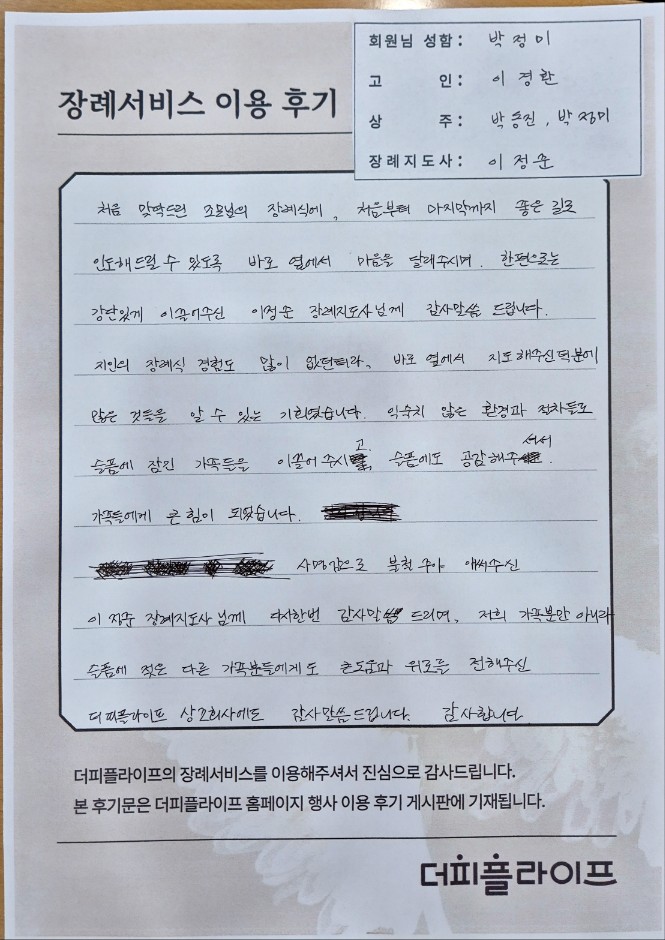 회원님 성함 : 박정미
고 인 : 이경환
상 주 : 박승진, 박정미
장례지도사 : 이정준
장례서비스 이용 후기
처음 맞닥드린 조모님의 장례식에, 처음부터 마지막까지 좋은 길로
인도해드릴 수 있도록 바로 옆에서 마음을 달래주시며, 한편으로는
강단있게 이끌어주신 이정준 장례지도사님께 감사말씀 드립니다.
지인의 장례식 경험도 많이 없던터라, 바로 옆에서 지도해주신 덕분에
많은 것들을 알 수 있는 기회였습니다. 익숙치 않은 환경과 절차들로
슬픔에 잠긴 가족들을 이끌어주시고, 슬픔에도 공감해주셔서
가족들에게 큰 힘이 되었습니다.
사명감으로 불철주야 애써주신
이정준 장례지도사님께 다시한번 감사말씀 드리며, 저희 가족분만 아니라
슬픔에 젖은 다른 가족분들에게도 큰도움과 위로를 전해주신
더피플라이프 상조회사에도 감사말씀드립니다. 감사합니다
더피플라이프의 장례서비스를 이용해주셔서 진심으로 감사드립니다.
본 후기문은 더피플라이프 홈페이지 행사 이용 후기 게시판에 기재됩니다.
더피플라이프